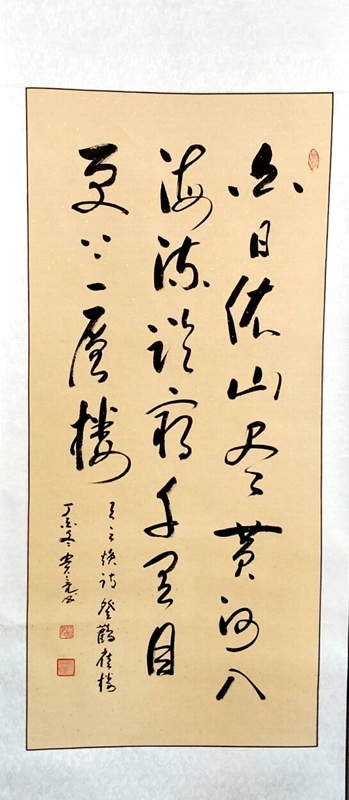 白日依山尽黄河入
海流欲穷千里目
更上一层楼
王之涣诗登鹳雀楼
丁酉冬